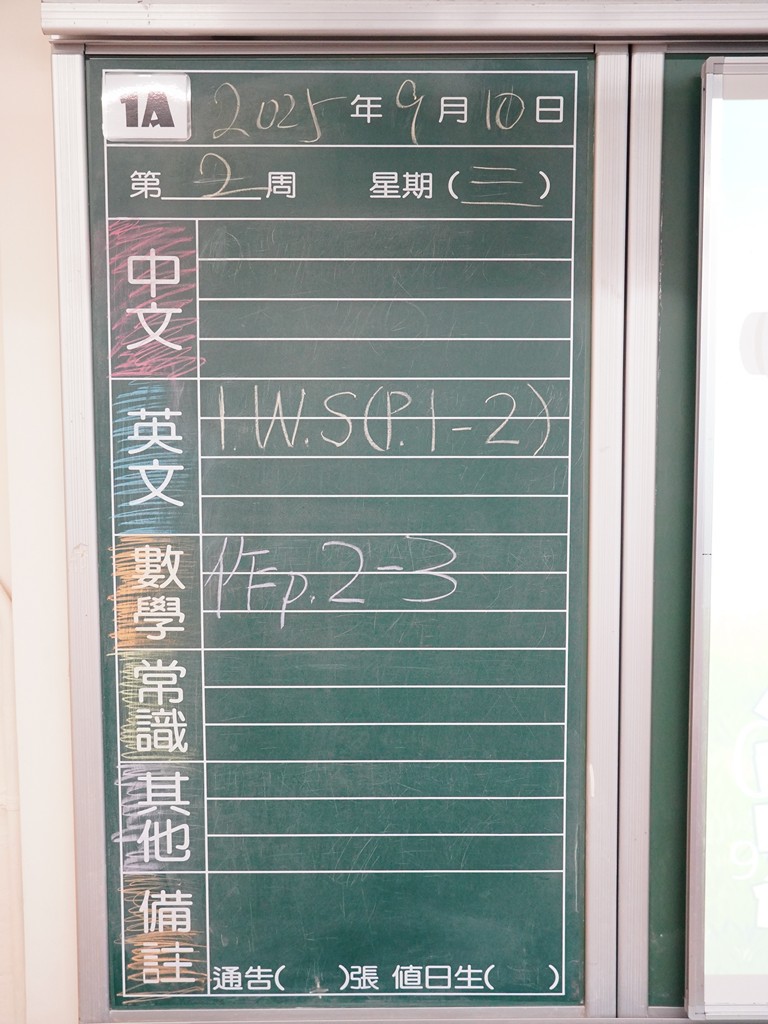 1A 2025年9月10日
第2周 星期(三)
中文
英文 1. W.S(P.1-2)
數學 作p.2-3
常識
其他
備註 通告( )張 值日生( )